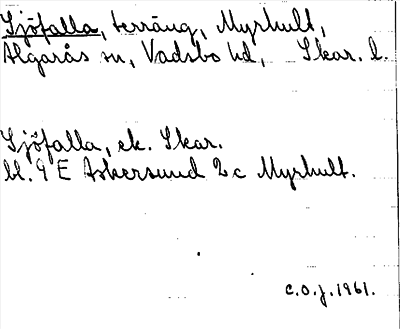 Sjöfalla, terräng, Myrhult,
Algarås sn, Vadsbo hd, Skar. l.
Sjöfalla, ek. Skar.
bl. 9 E Askersund 2 c Myrhult.
C.O.J. 1961.